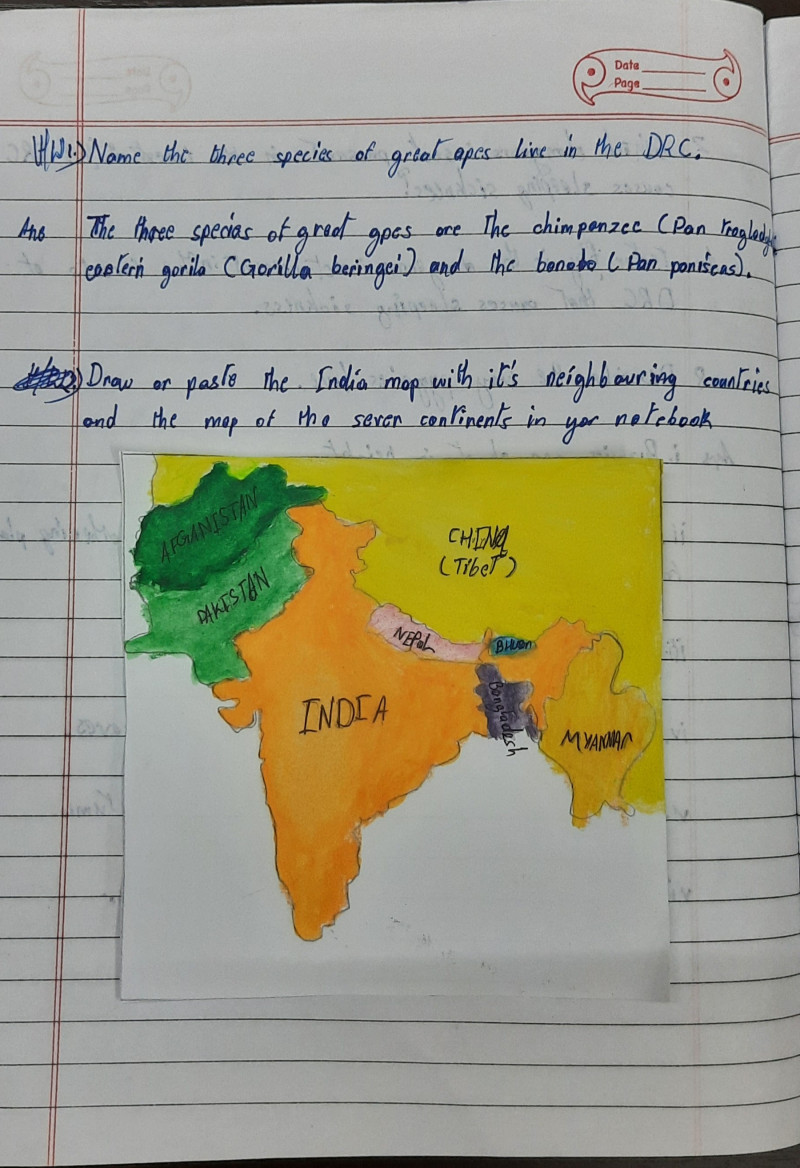 Date
Page
HW1.) Name the three species of great apes live in the DRC.
Ans The three species of great apes are The chimpanzee (Pan troglody
eastern gorila (Gorilla beringei) and the bonobo (Pan paniscas).
2.) Draw or paste the India map with it's neighbouring countries
and the map of the seven continents in yor notebook
AFGANISTAN
CHINA
(Tibet)
PAKISTAN
NEPAL
BHUTAN
INDIA
Bangladesh
MYANMAR